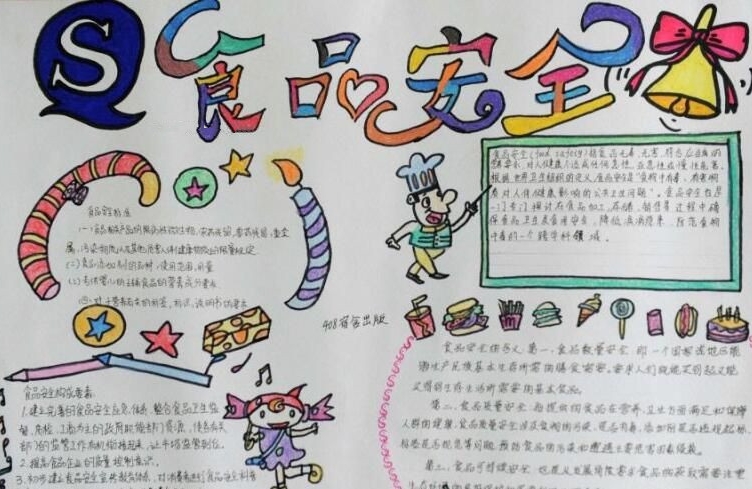 S
食品安全
食品安全(food safety)指食品无毒、无害,符合应当有的
营养要求,对人体健康不造成任何急性、亚急性或慢性危害。
根据世界卫生组织的定义,食品安全是"食物中有毒、有害物
质对人体健康影响的公共卫生问题"。食品安全也是
一门专门探讨在食品加工、存储、销售等过程中确
保食品卫生及食用安全,降低疾病隐患,防范食物
中毒的一个跨学科领域。
食品安全标准
(一)食品相关产品的致病性微生物、农药残留、兽药残留、重金
属、污染物质以及其他危害人体健康物质的限量规定
(二)食品添加剂的品种、使用范围、用量
(三)专供婴幼儿的主辅食品的营养成分要求
(四)对于营养有关的标签、标识、说明书的要求
408宿舍出版
食品安全的含义:第一,食品数量安全,即一个国家或地区能
够生产民族基本生存所需的膳食需要。要求人们既能买得到又能
买得起生存生活所需要的基本食品。
第二,食品质量安全:指提供的食品在营养、卫生方面满足和保障
人群的健康,食品质量安全涉及食物的污染、是否有毒、添加剂是否违规超标、
标签是否规范等问题,
第三,食品可持续安全,
食品安全构成要素
1.建立完善的食品安全应急体系,整合食品卫生监
督、
2.提高食品企业的质量控制意识。
3.初步建立食品安全宣传教育体系,对消费者进行食品安全科普